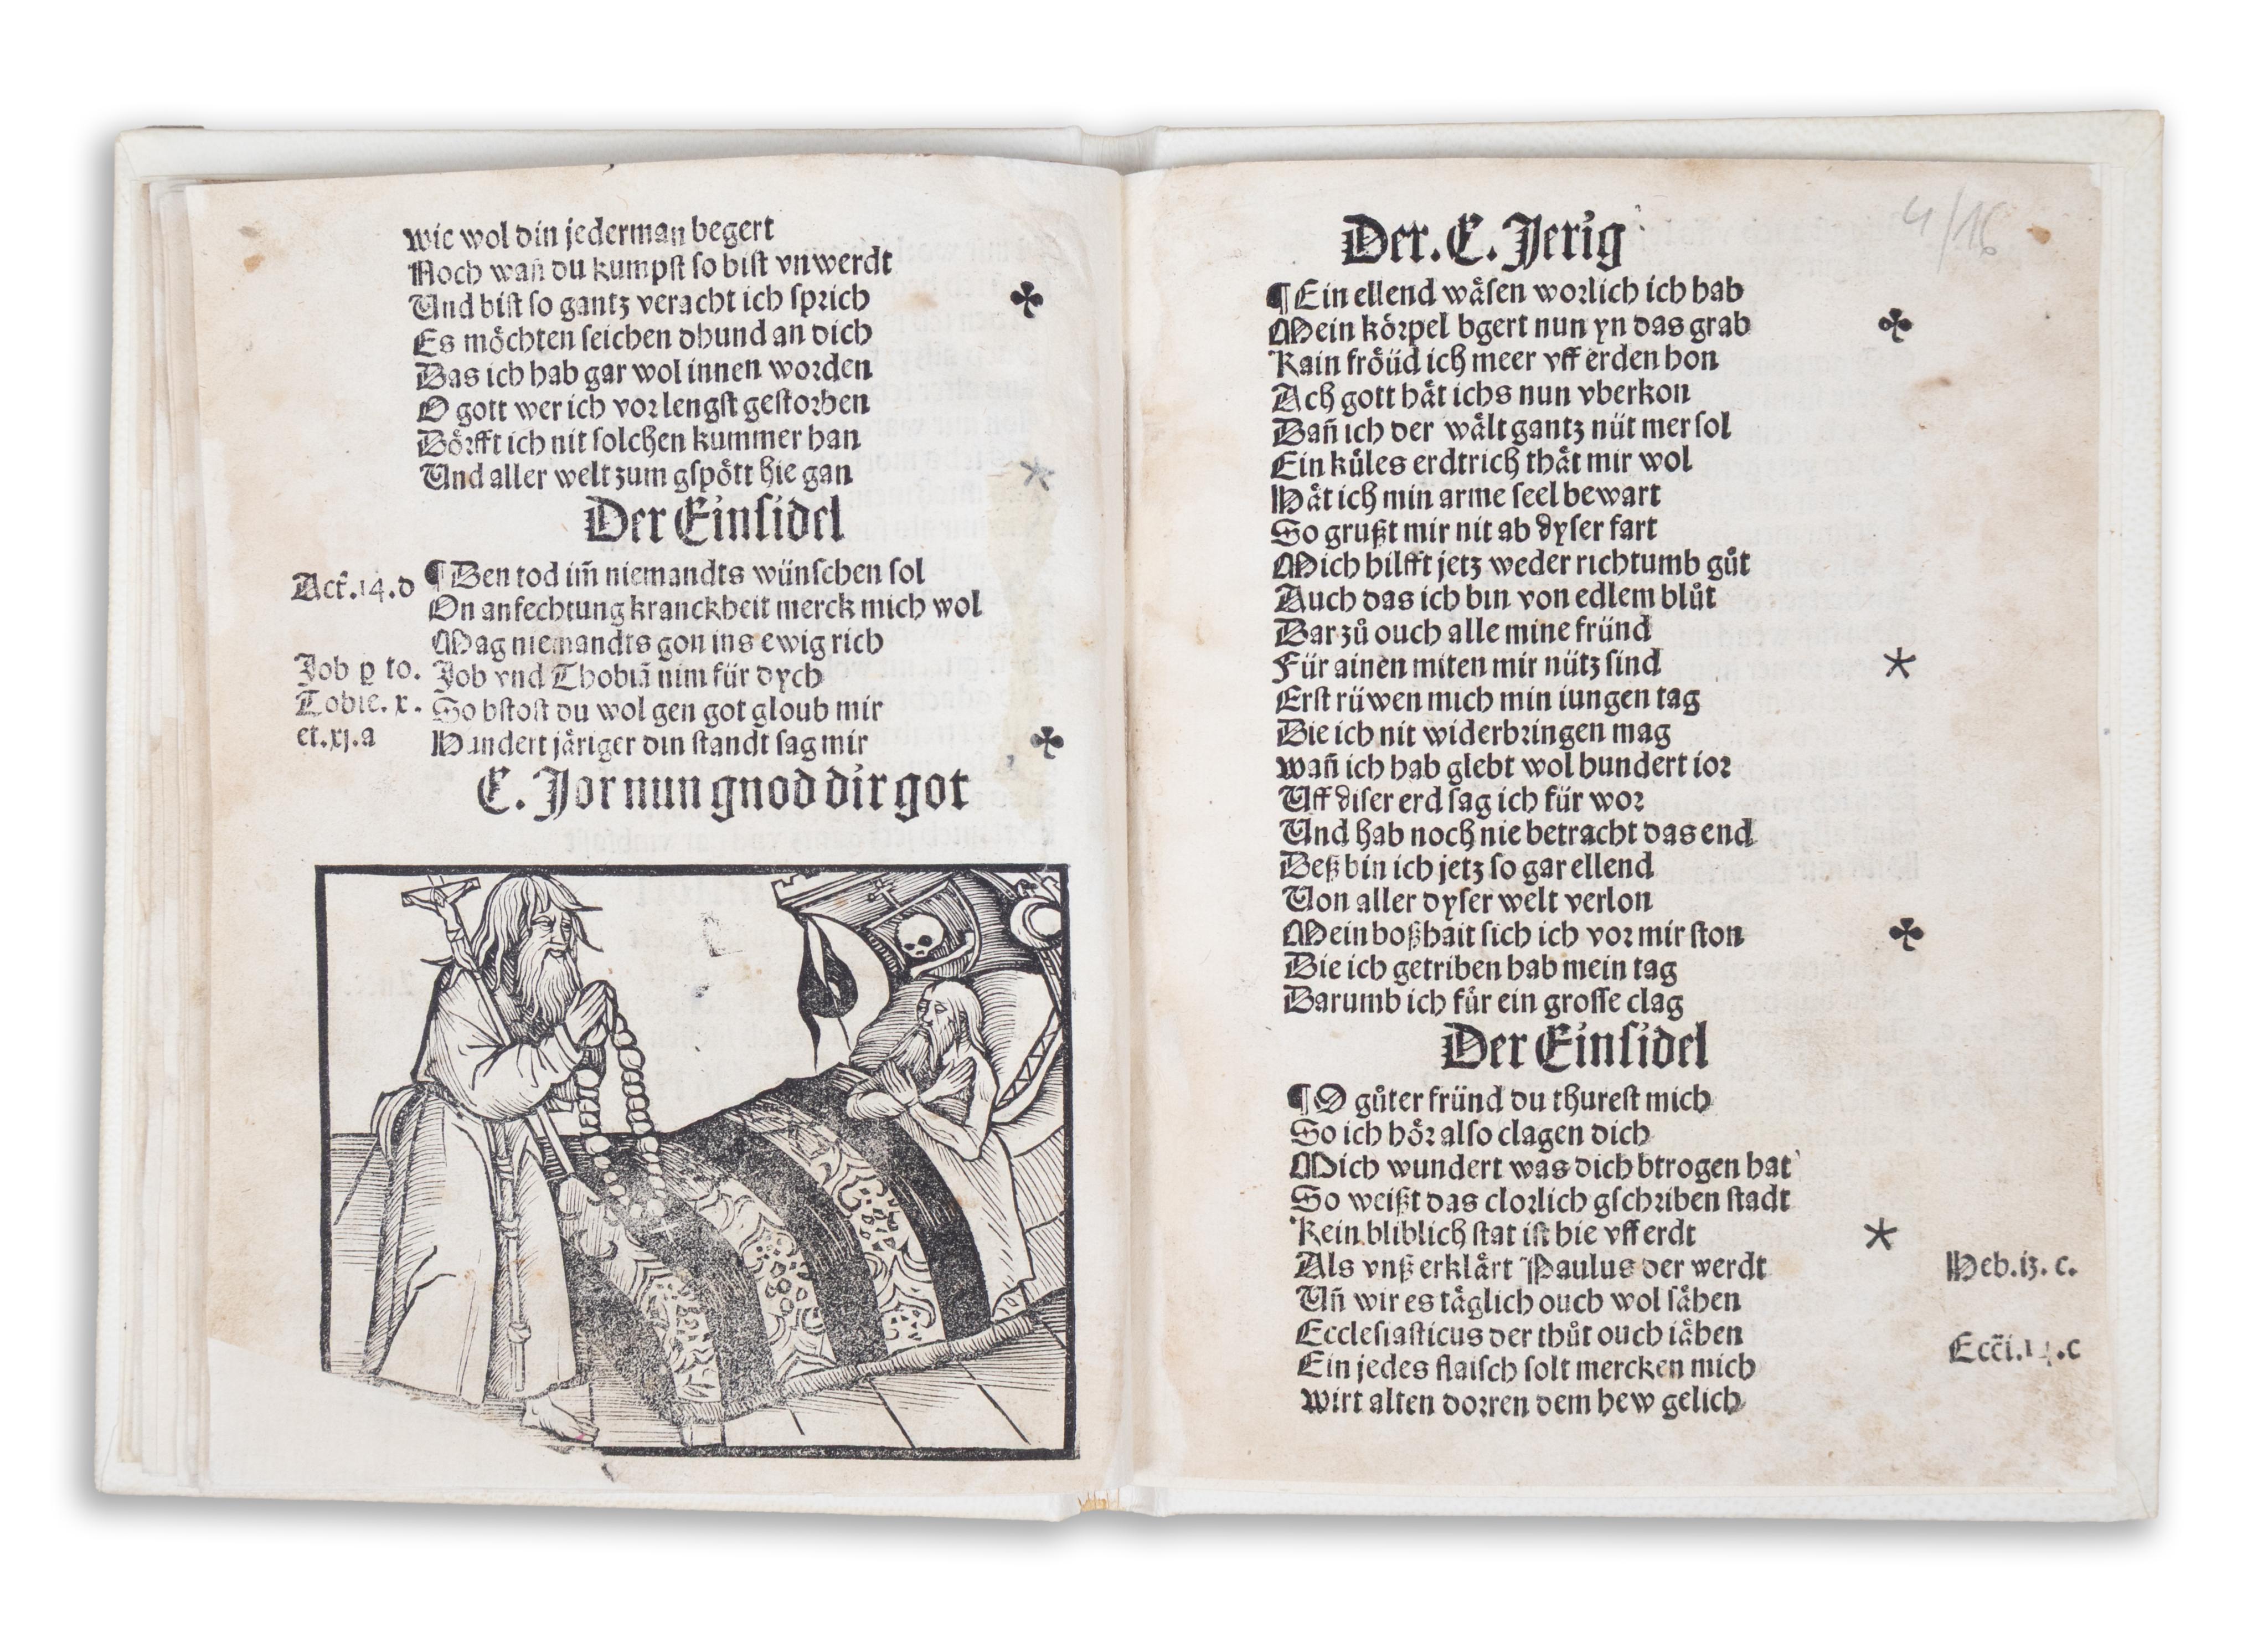 wie wol din jederman begert
Noch wañ du kumpst so bist vnwerdt
Und bist so gantz veracht ich sprich ♣
Es möchten seichen dhund an dich
Das ich hab gar wol innen worden
O gott wer ich vor lengst gestorben
Dörfft ich nit solchen kummer han
Und aller welt zum gspött hie gan *
Der Einsidel
Act̃.14.d ¶ Den tod im̃ niemandts wünschen sol
On anfechtung kranckheit merck mich wol
Mag niemandts gon ins ewig rich
Job ꝑ to. Job vnd Thobiã nim für dych
Tobie. x. So bstost du wol gen got gloub mir
et.xj.a Hundert järiger din standt sag mir ♣
C. Jor nun gnod dir got
4/16
Der. C. Jerig
¶ Ein ellend wäsen worlich ich hab
Mein körpel bgert nun yn das grab ♣
Kain fröüd ich meer vff erden hon
Ach gott hät ichs nun vberkon
Dañ ich der wält gantz nüt mer sol
Ein küles erdtrich thät mir wol
Hät ich min arme seel bewart
So grußt mir nit ab dyser fart
Mich hilfft jetz weder richtumb gůt
Auch das ich bin von edlem blůt
Dar zů ouch alle mine fründ
Für ainen miten mir nütz sind *
Erst rüwen mich min iungen tag
Die ich nit widerbringen mag
wañ ich hab glebt wol hundert ior
Uff diser erd sag ich für wor
Und hab noch nie betracht das end
Deß bin ich jetz so gar ellend
Von aller dyser welt verlon
Mein boßhait sich ich vor mir ston ♣
Die ich getriben hab mein tag
Darumb ich für ein grosse clag
Der Einsidel
¶ O gůter fründ du thurest mich
So ich hör also clagen dich
Mich wundert was dich btrogen hat
So weißt das clorlich gschriben stadt
Kein bliblich stat ist hie vff erdt *
Als vnß erklärt Paulus der werdt Heb.i3. c.
Uñ wir es täglich ouch wol sähen
Ecclesiasticus der thůt ouch iähen Ecc̃i.14.c
Ein jedes flaisch solt mercken mich
wirt alten dorren dem hew gelich